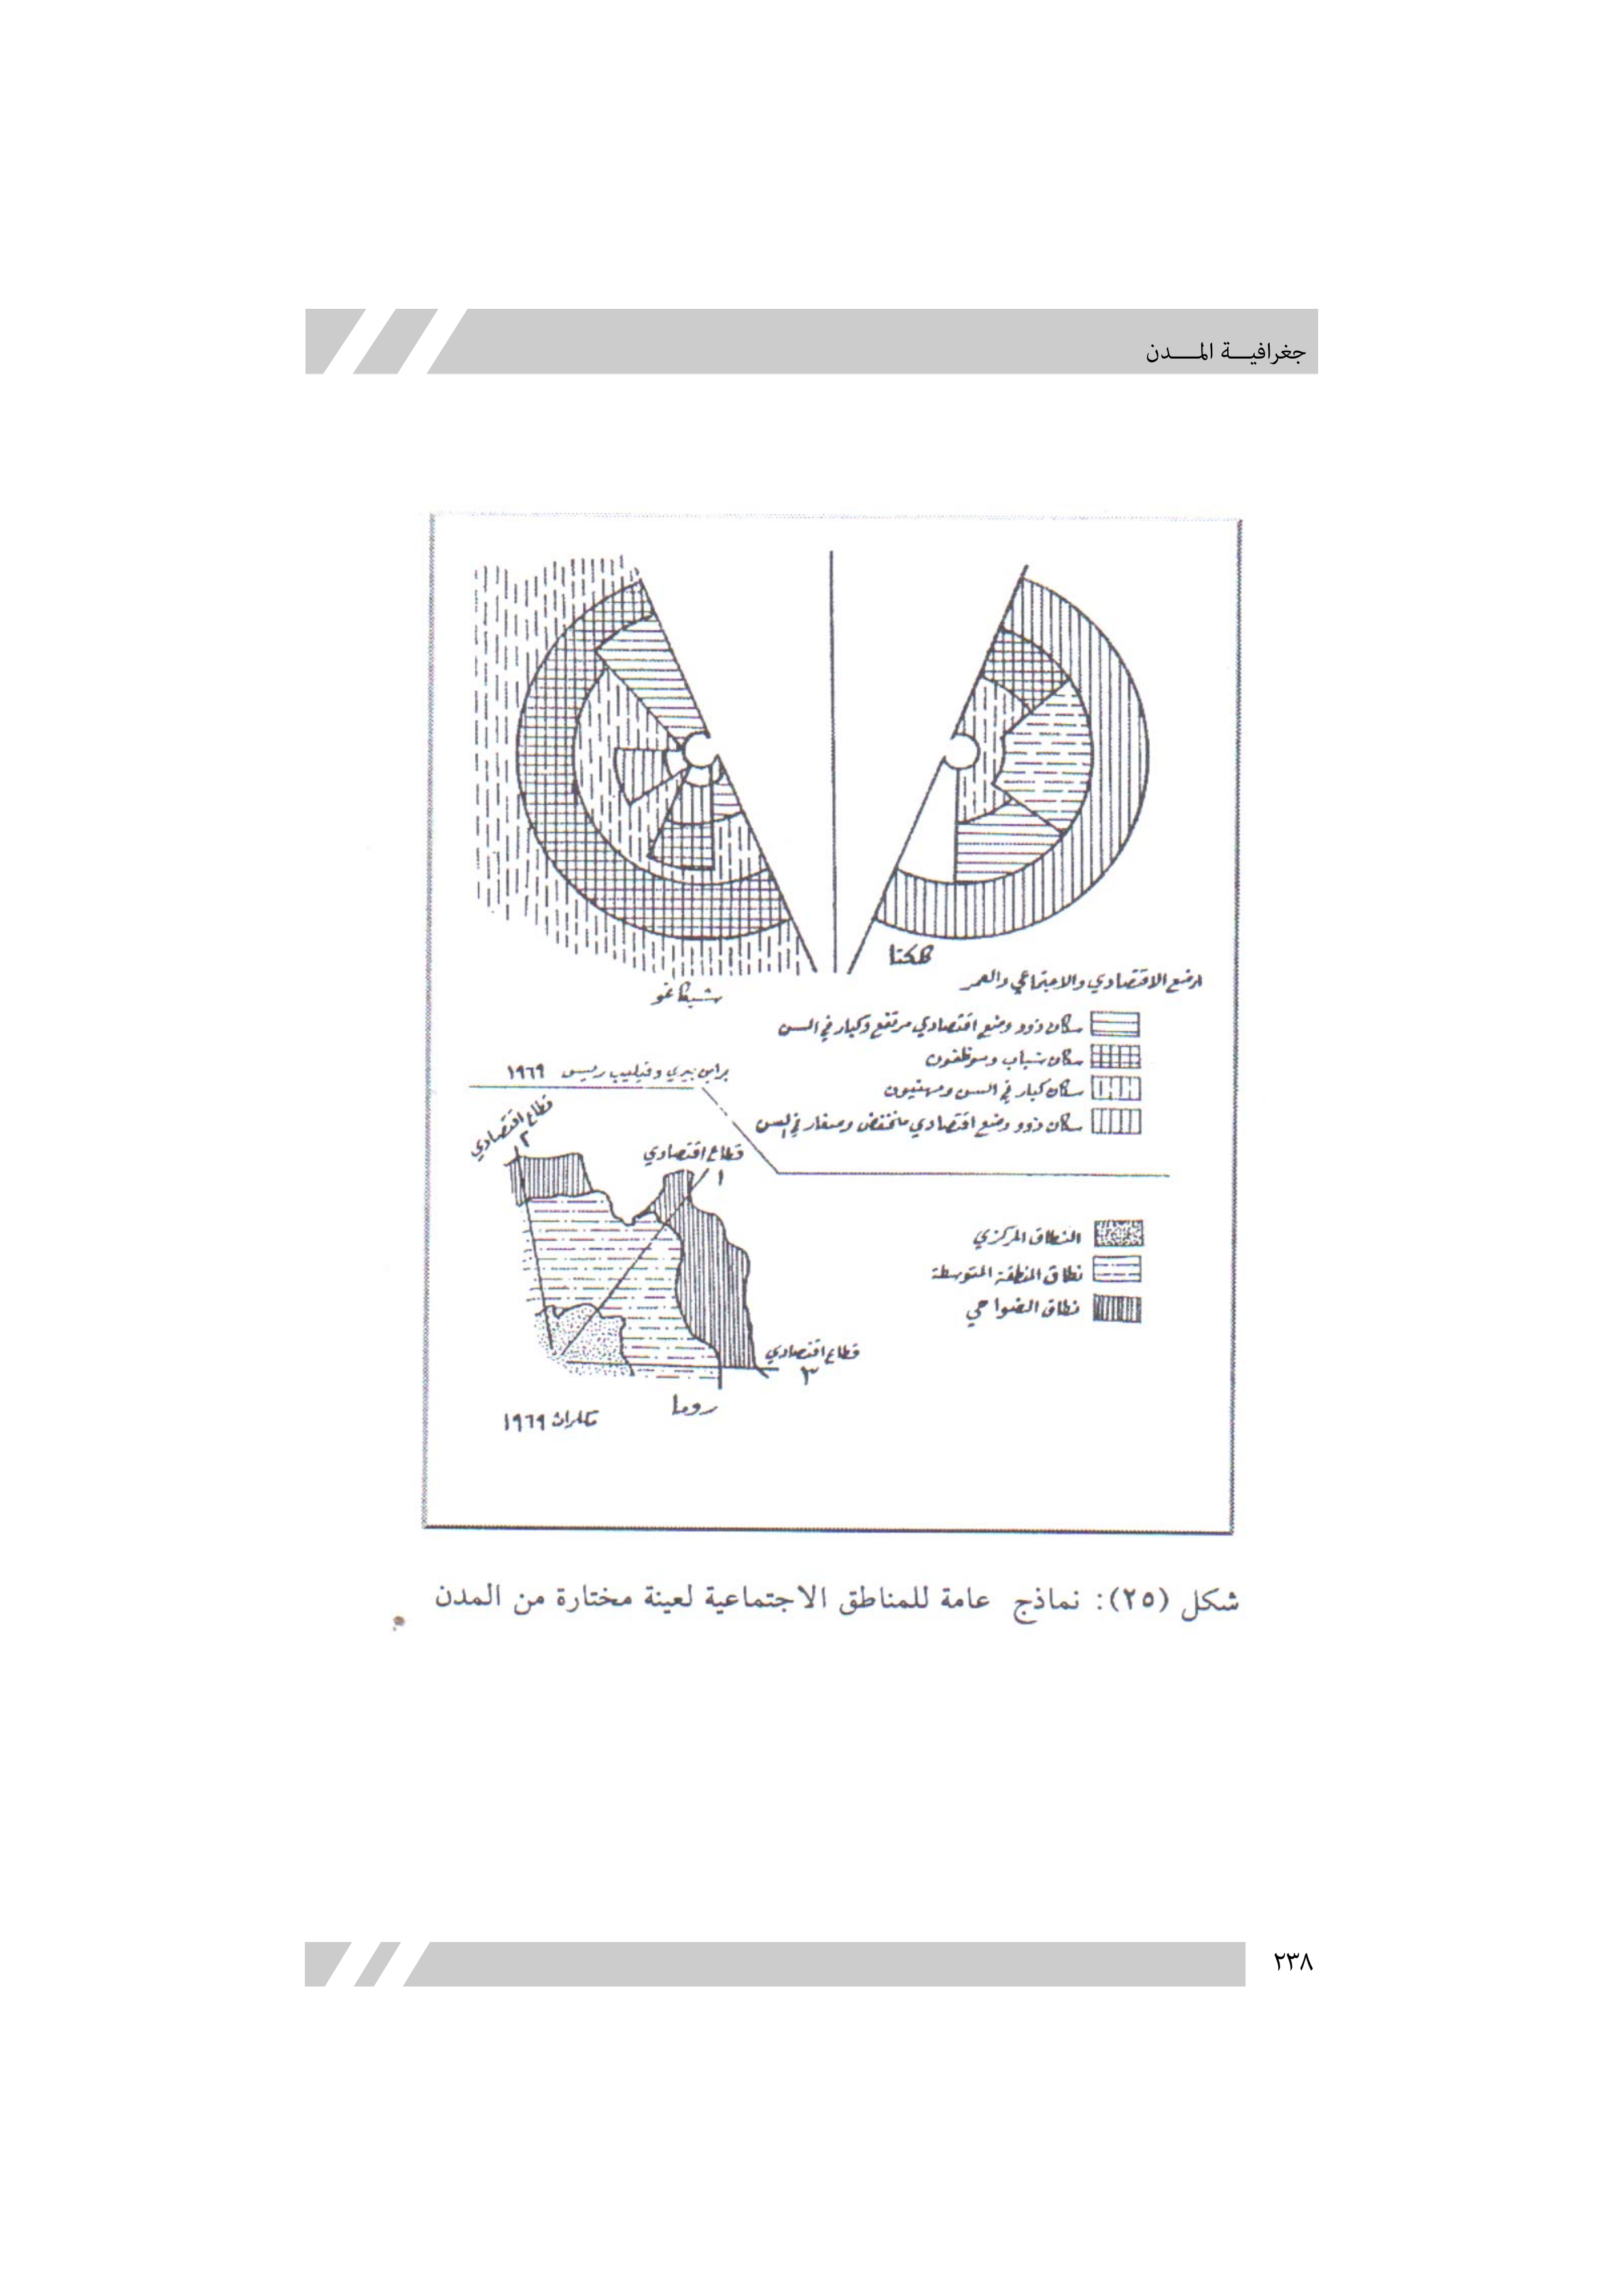 جغرافيـــة المــــدن
كلكتا
شيكاغو
الوضع الاقتصادي والاجتماعي والعمر
سكان ذوو وضع اقتصادي مرتفع وكبار في السن
سكان شباب وموظفون
سكان كبار في السن ومهنيون
سكان ذوو وضع اقتصادي منخفض وصغار في السن
براين بيري وفيليب ريس ١٩٦٩
قطاع اقتصادي
٢
قطاع اقتصادي
١
قطاع اقتصادي
٣
النطاق المركزي
نطاق المنطقة المتوسطة
نطاق الضواحي
روما
١٩٦٩
شكل (٢٥): نماذج عامة للمناطق الاجتماعية لعينة مختارة من المدن
٢٣٨